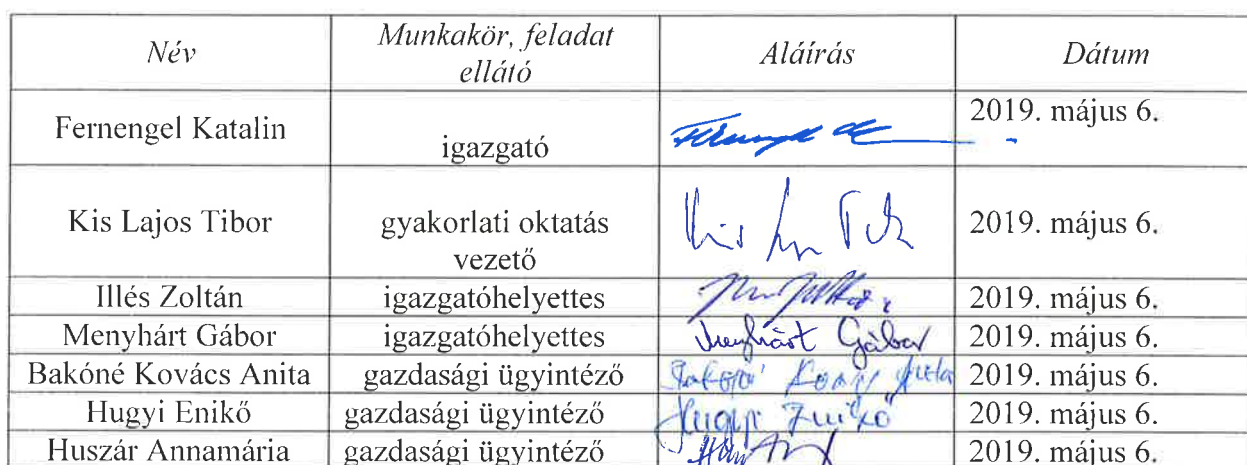 Név Munkakör, feladat ellátó Aláírás Dátum
Fernengel Katalin igazgató 2019. május 6.
Kis Lajos Tibor gyakorlati oktatás vezető Kis 2019. május 6.
Illés Zoltán igazgatóhelyettes 2019. május 6.
Menyhárt Gábor igazgatóhelyettes Menyhárt Gábor 2019. május 6.
Bakóné Kovács Anita gazdasági ügyintéző Bakóné Kovács Anita 2019. május 6.
Hugyi Enikő gazdasági ügyintéző Hugyi Enikő 2019. május 6.
Huszár Annamária gazdasági ügyintéző 2019. május 6.